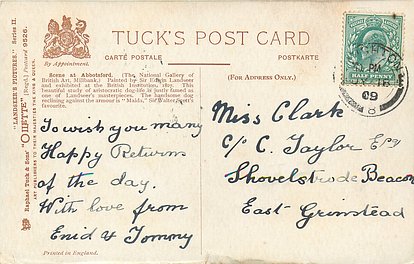 TUCK'S POST CARD
By Appointment.
CARTE POSTALE
POSTKARTE
(FOR ADDRESS ONLY.)
Scene at Abbotsford. (The National Gallery of
British Art, Millbank.) Painted by Sir Edwin Landseer
and exhibited at the British Institution, 1827. This
beautiful study of aristocratic dog-life is justly famed as
one of Landseer's masterpieces. The handsome dog
reclining against the armour is "Maida," Sir Walter Scott's
favourite.
"LANDSEER PICTURES." Series II.
Raphael Tuck & Sons' "OILETTE" [Regd.] Postcard 9526.
ART PUBLISHERS TO THEIR MAJESTIES THE KING & QUEEN.
To wish you many
Happy Return
of the day.
With love from
Enid & Tommy
Printed in England.
HALF PENNY
09
Miss Clark
C/o C. Taylor Esq
Shovelstrode Beacon
East Grinstead